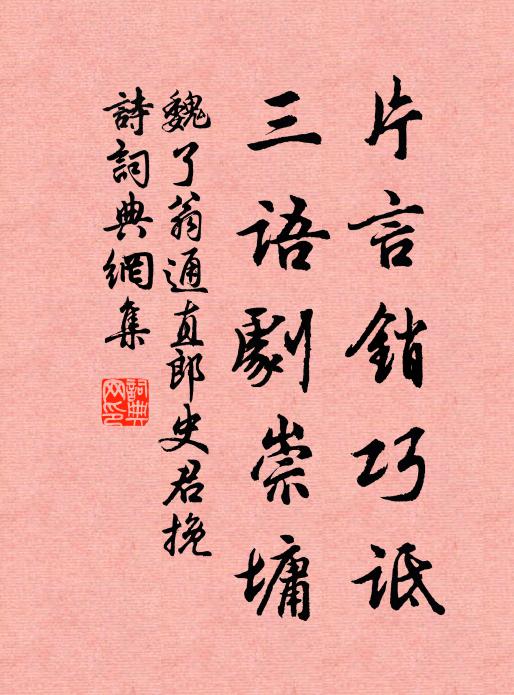 片言銷巧詆
三語劇崇墉
魏了翁通直郎史君挽
詩詞典網集
詞典网印